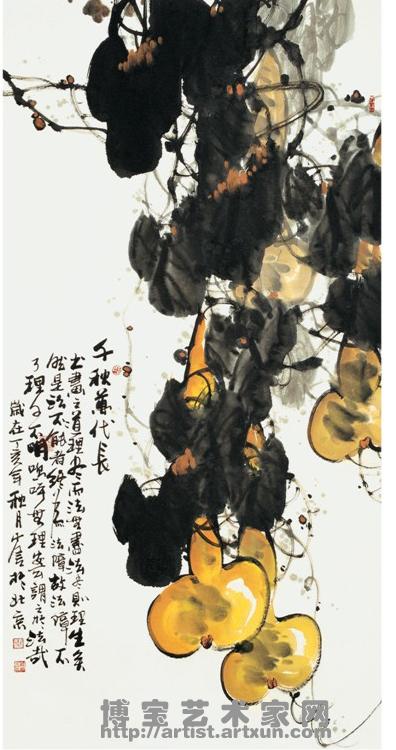 千秋萬代長
畫之道理而法盡法則理生矣
然是不能者終法障故法障不
了理不明嗚呼理安謂之於法哉
歲在丁亥年秋月於北京
博宝艺术家网
http://artist.artxun.com